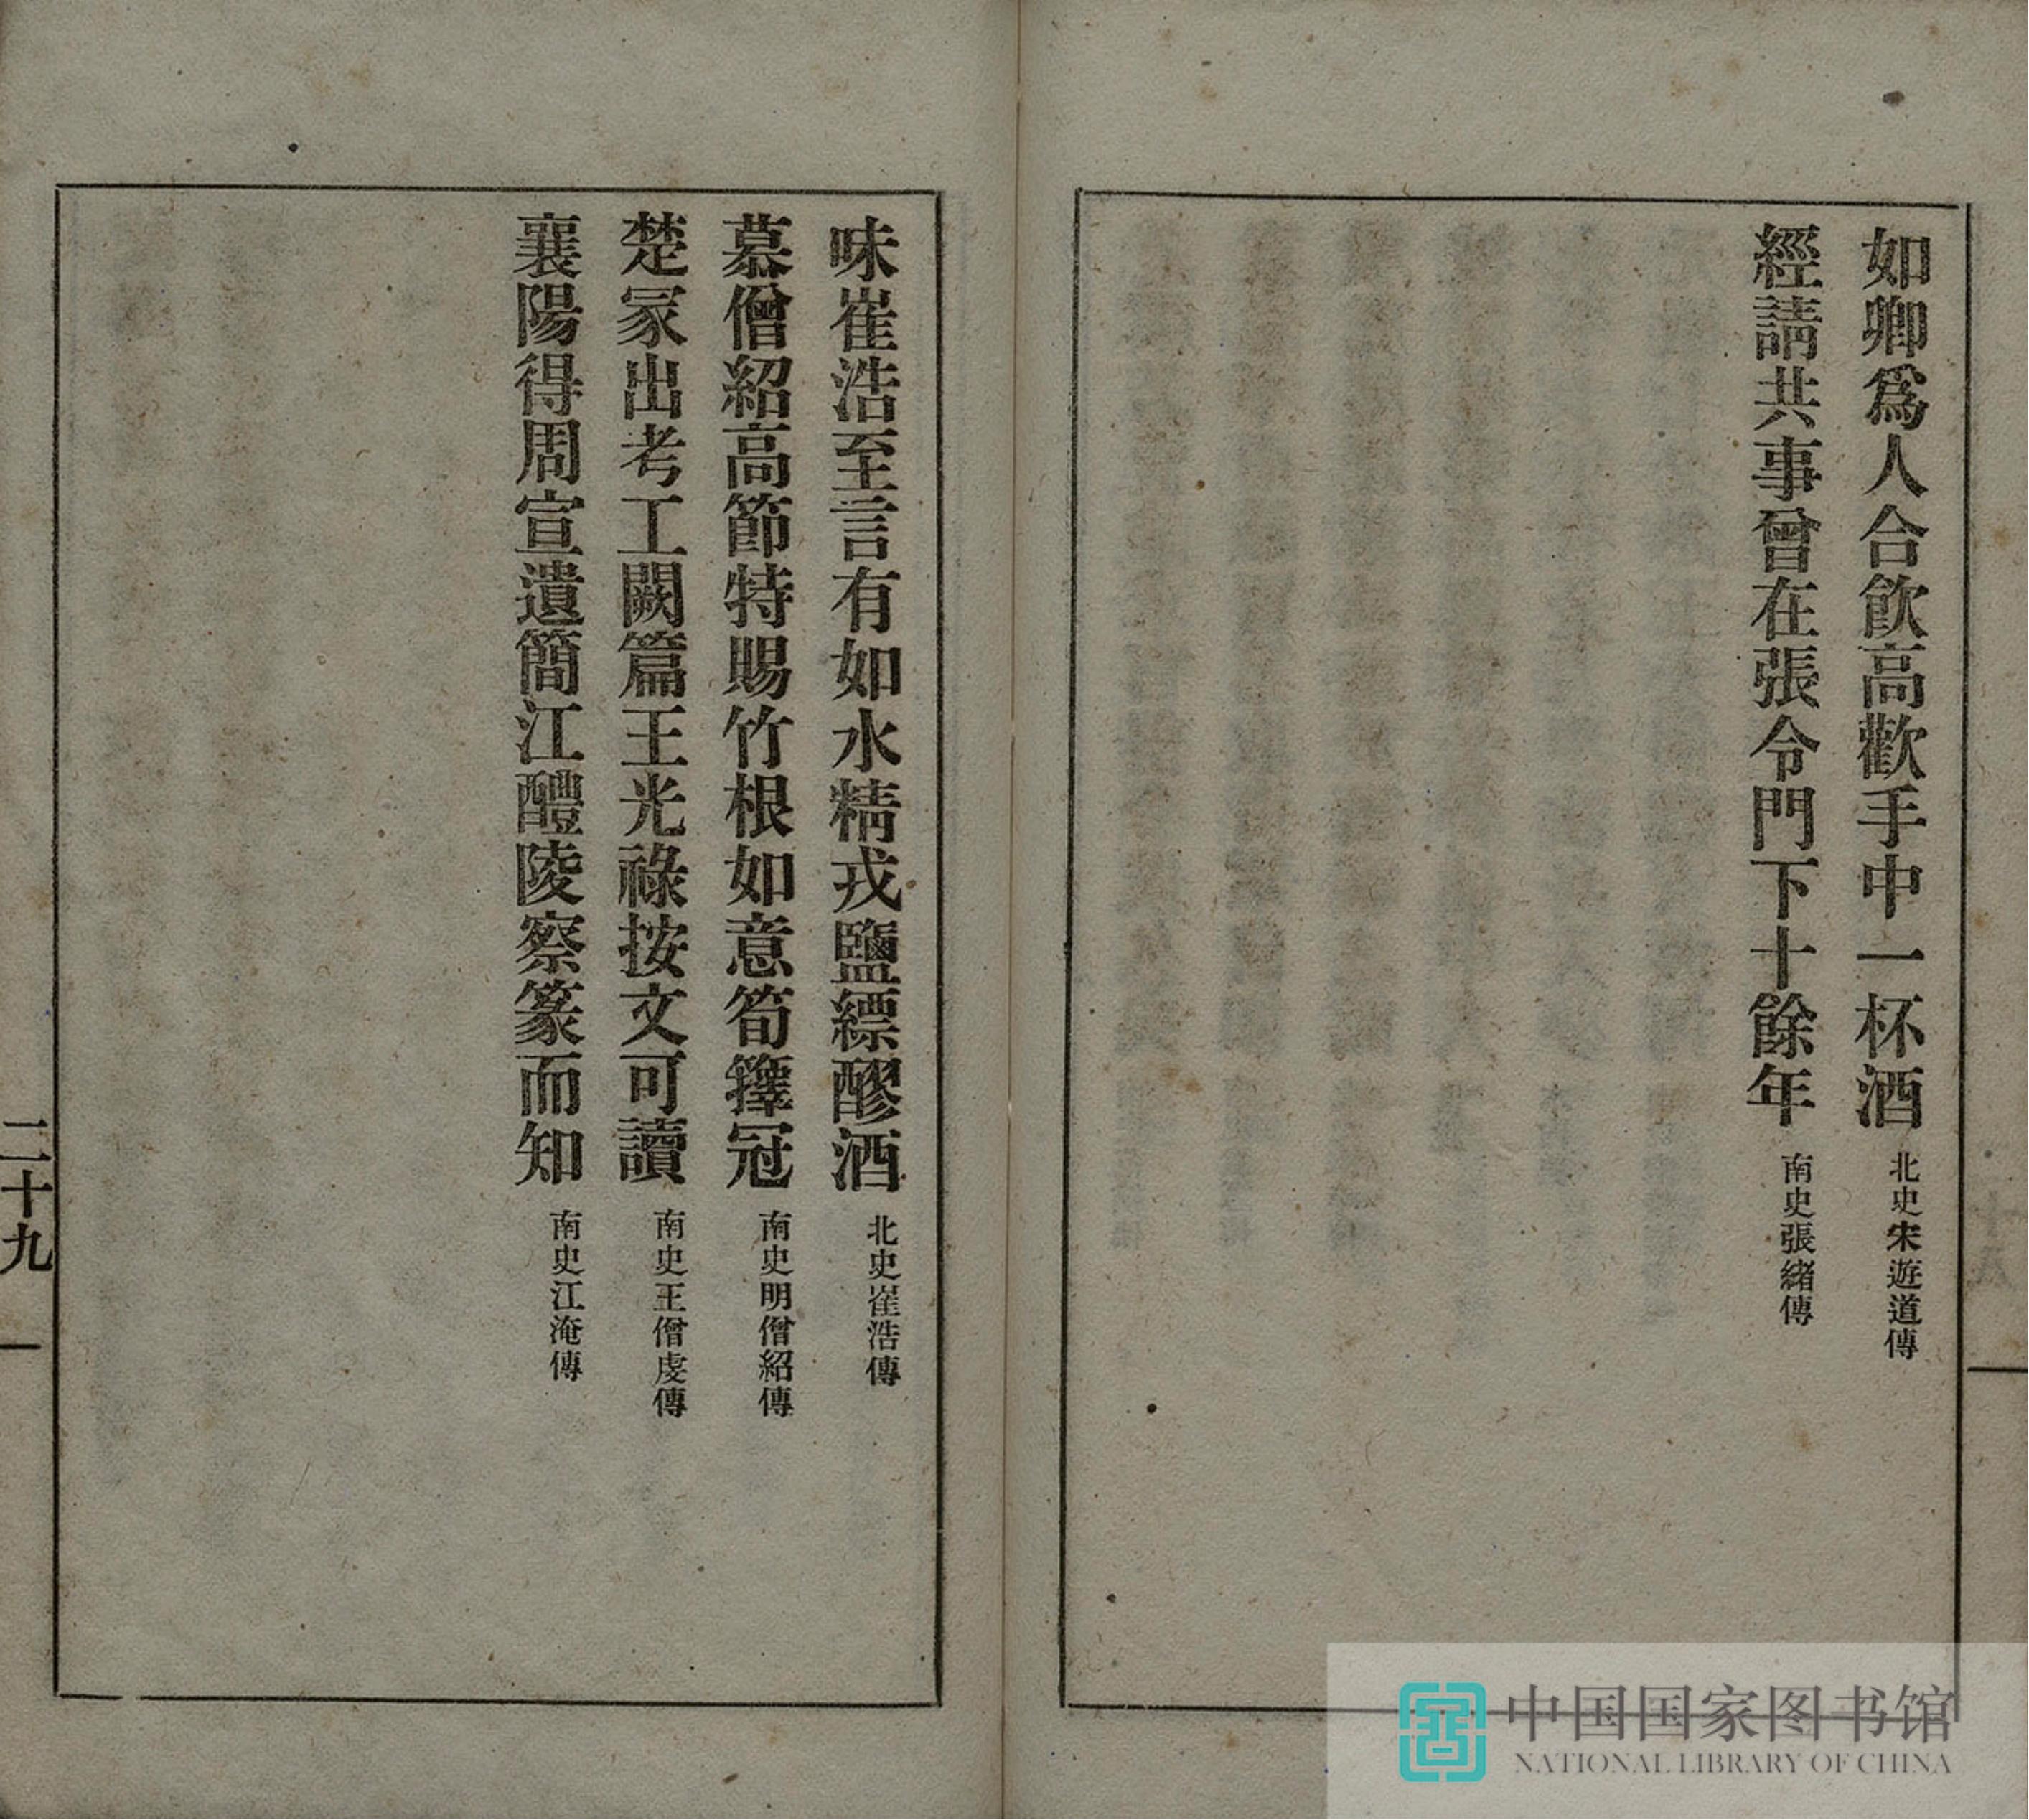 如卿爲人合飮高歡手中一杯酒 北史宋遊道傳
經請共事曾在張令門下十餘年 南史張緒傳
味崔浩至言有如水精戎鹽縹醪酒 北史崔浩傳
慕僧紹高節特賜竹根如意筍籜冠 南史明僧紹傳
楚冢出考工闕篇王光祿按文可讀 南史王僧虔傳
襄陽得周宣遺簡江醴陵察篆而知 南史江淹傳
二十九
中国国家图书馆
NATIONAL LIBRARY OF CHINA